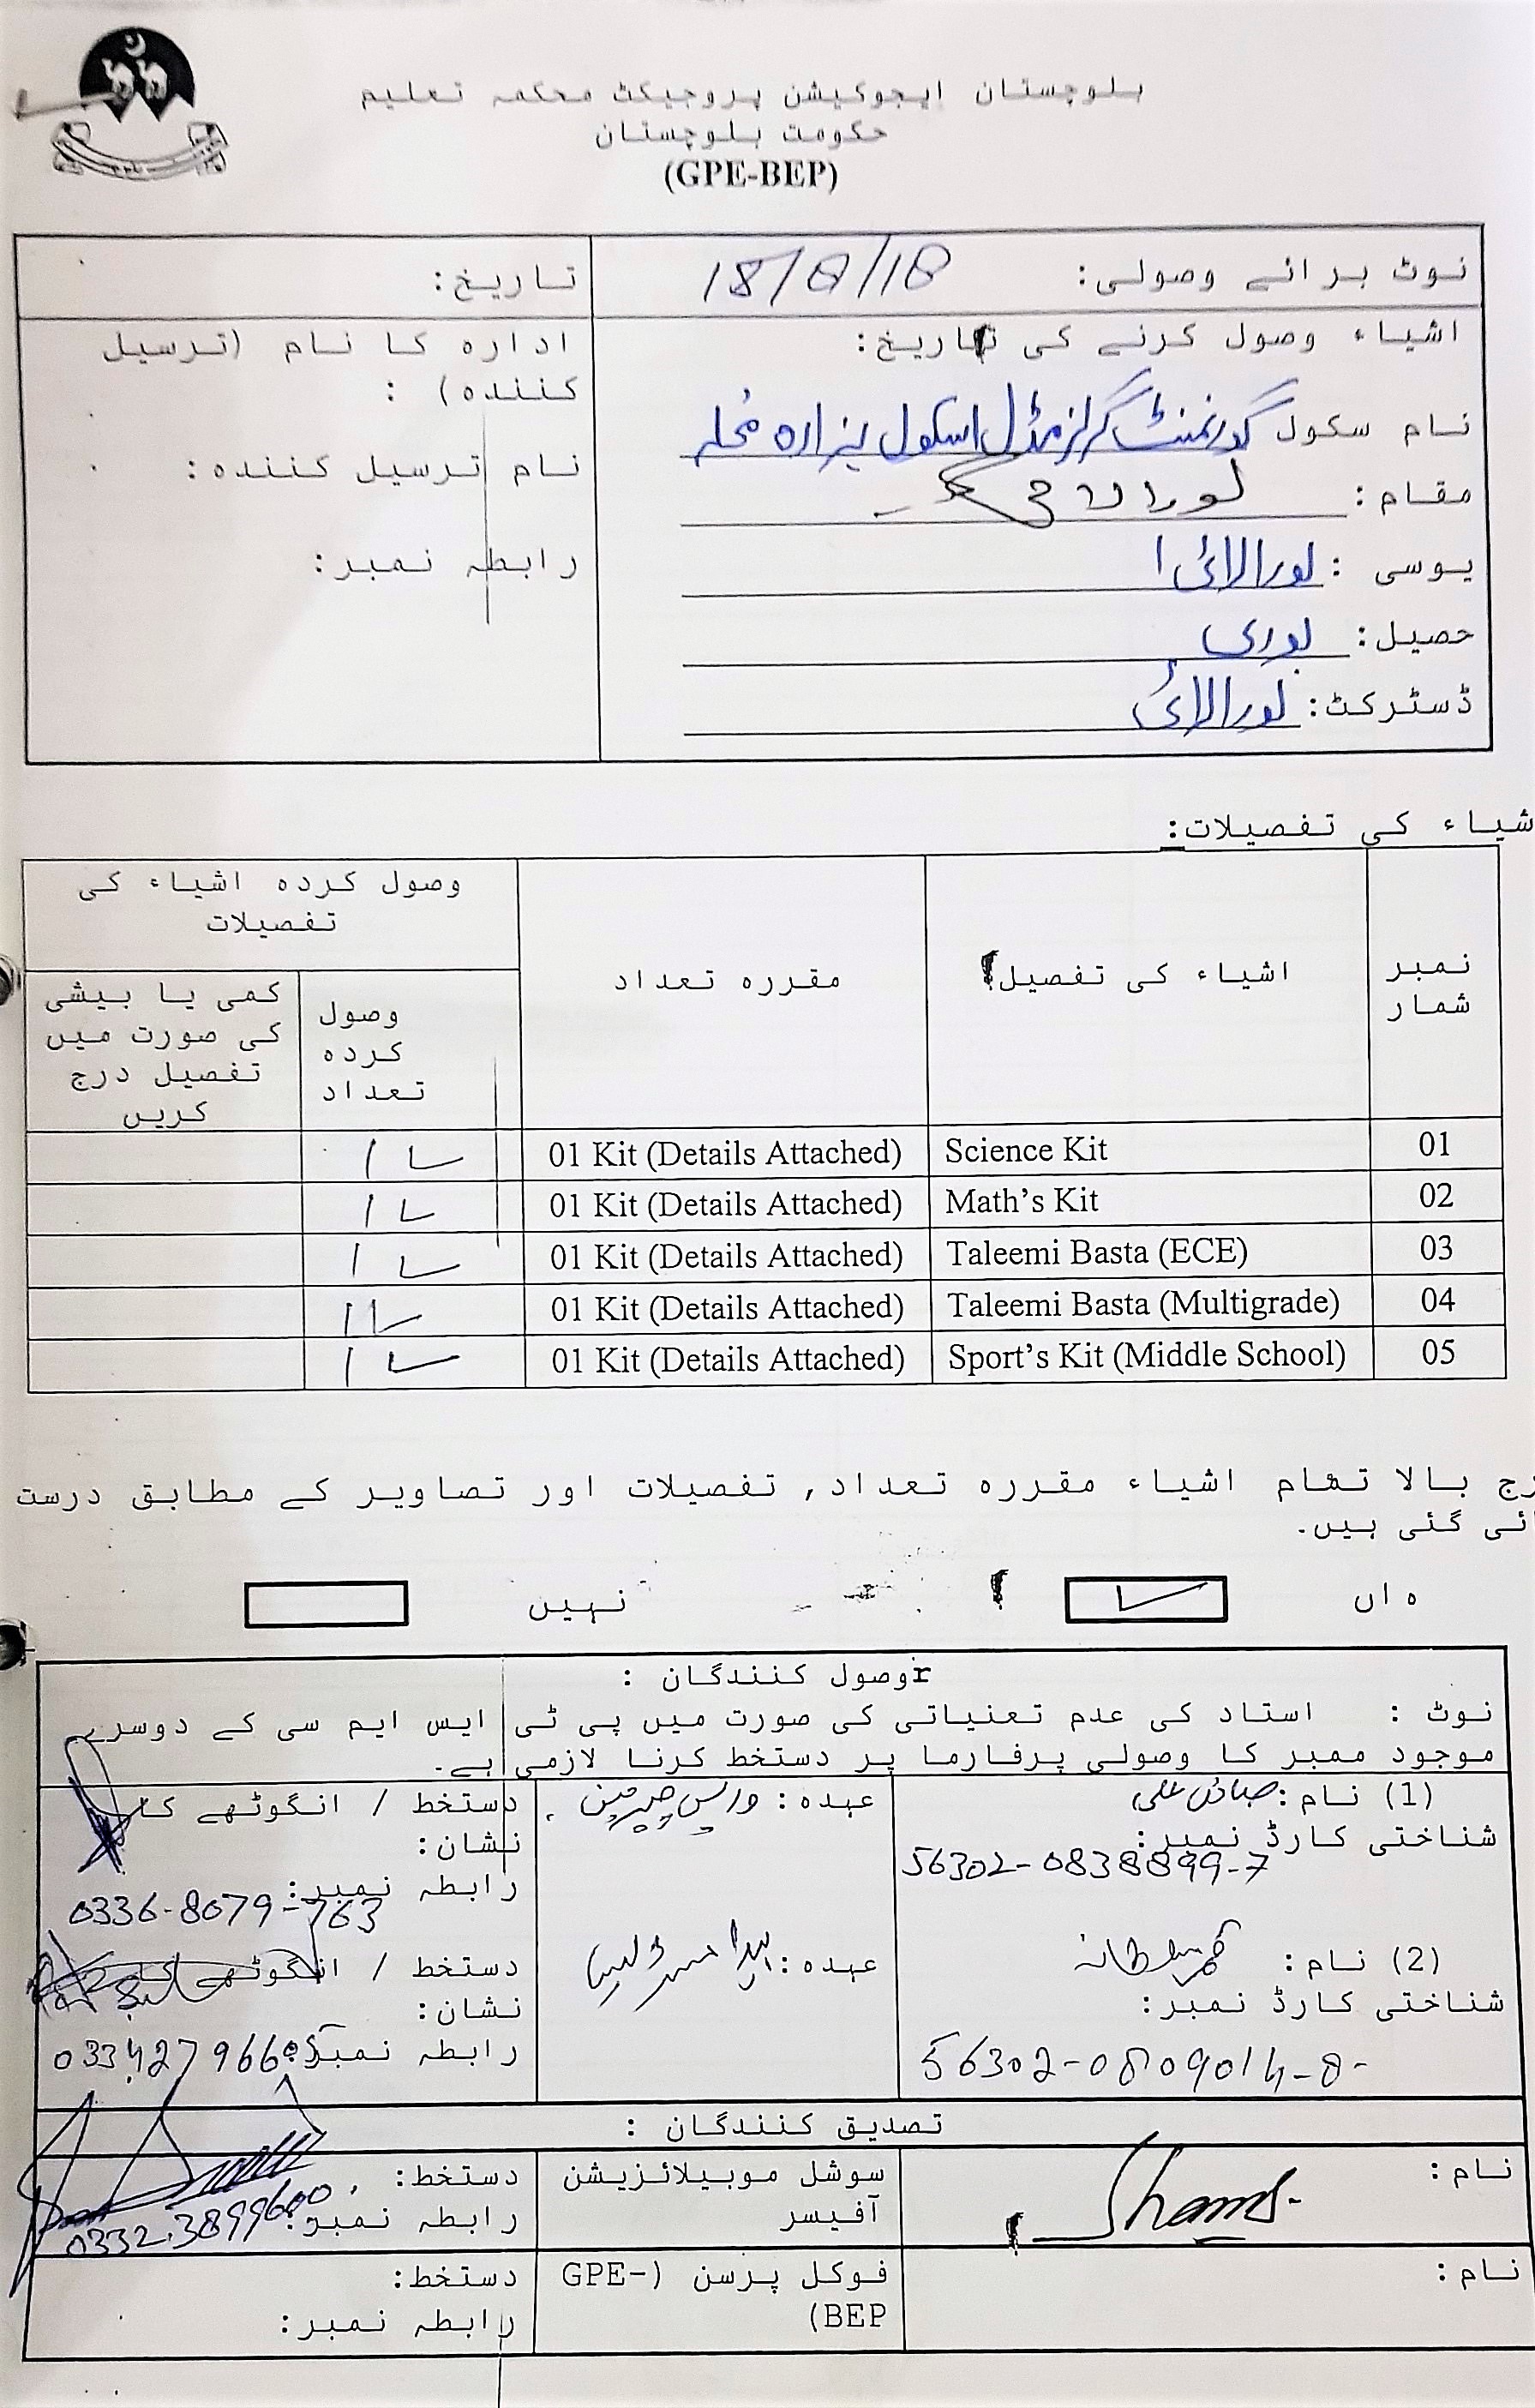 بلوچستان ایجوکیشن پروجیکٹ محکمہ تعلیم
حکومت بلوچستان
(GPE-BEP)
نوٹ برائے وصولی: 18/8/18
تاریخ:
اشیاء وصول کرنے کی تاریخ:
نام سکول گورنمنٹ گرلز مڈل اسکول ہزارہ محلہ
مقام: لورالائی
یوسی : لورالائی ا
حصیل: لوری
ڈسٹرکٹ: لورالائی
ادارہ کا نام (ترسیل
کنندہ) :
نام ترسیل کنندہ:
رابطہ نمبر:
شیاء کی تفصیلات:
نمبر شمار
اشیاء کی تفصیل
مقررہ تعداد
وصول کردہ اشیاء کی تفصیلات
وصول کردہ تعداد
کمی یا بیشی کی صورت میں تفصیل درج کریں
01 Science Kit 01 Kit (Details Attached) 1
02 Math’s Kit 01 Kit (Details Attached) 1
03 Taleemi Basta (ECE) 01 Kit (Details Attached) 1
04 Taleemi Basta (Multigrade) 01 Kit (Details Attached) 1
05 Sport’s Kit (Middle School) 01 Kit (Details Attached) 1
رج بالا تمام اشیاء مقررہ تعداد, تفصیلات اور تصاویر کے مطابق درست
ائی گئی ہیں.
ہاں
نہیں
rوصول کنندگان :
نوٹ : استاد کی عدم تعنیاتی کی صورت میں پی ٹی ایس ایم سی کے دوسرے
موجود ممبر کا وصولی پرفارما پر دستخط کرنا لازمی ہے.
(1) نام:
شناختی کارڈ نمبر:
56302-0838899-7
عہدہ: وائس چیرمین
دستخط / انگوٹھے کا
نشان:
رابطہ نمبر:
0336-8079-763
(2) نام: قمر سلطانہ
شناختی کارڈ نمبر:
56302-0809014-8-
عہدہ:
دستخط / انگوٹھے کا
نشان:
رابطہ نمبر:
تصدیق کنندگان :
نام: Shams
سوشل موبیلائزیشن
آفیسر
دستخط:
رابطہ نمبر: 0332-3899600
نام:
فوکل پرسن (GPE-
BEP)
دستخط:
رابطہ نمبر: